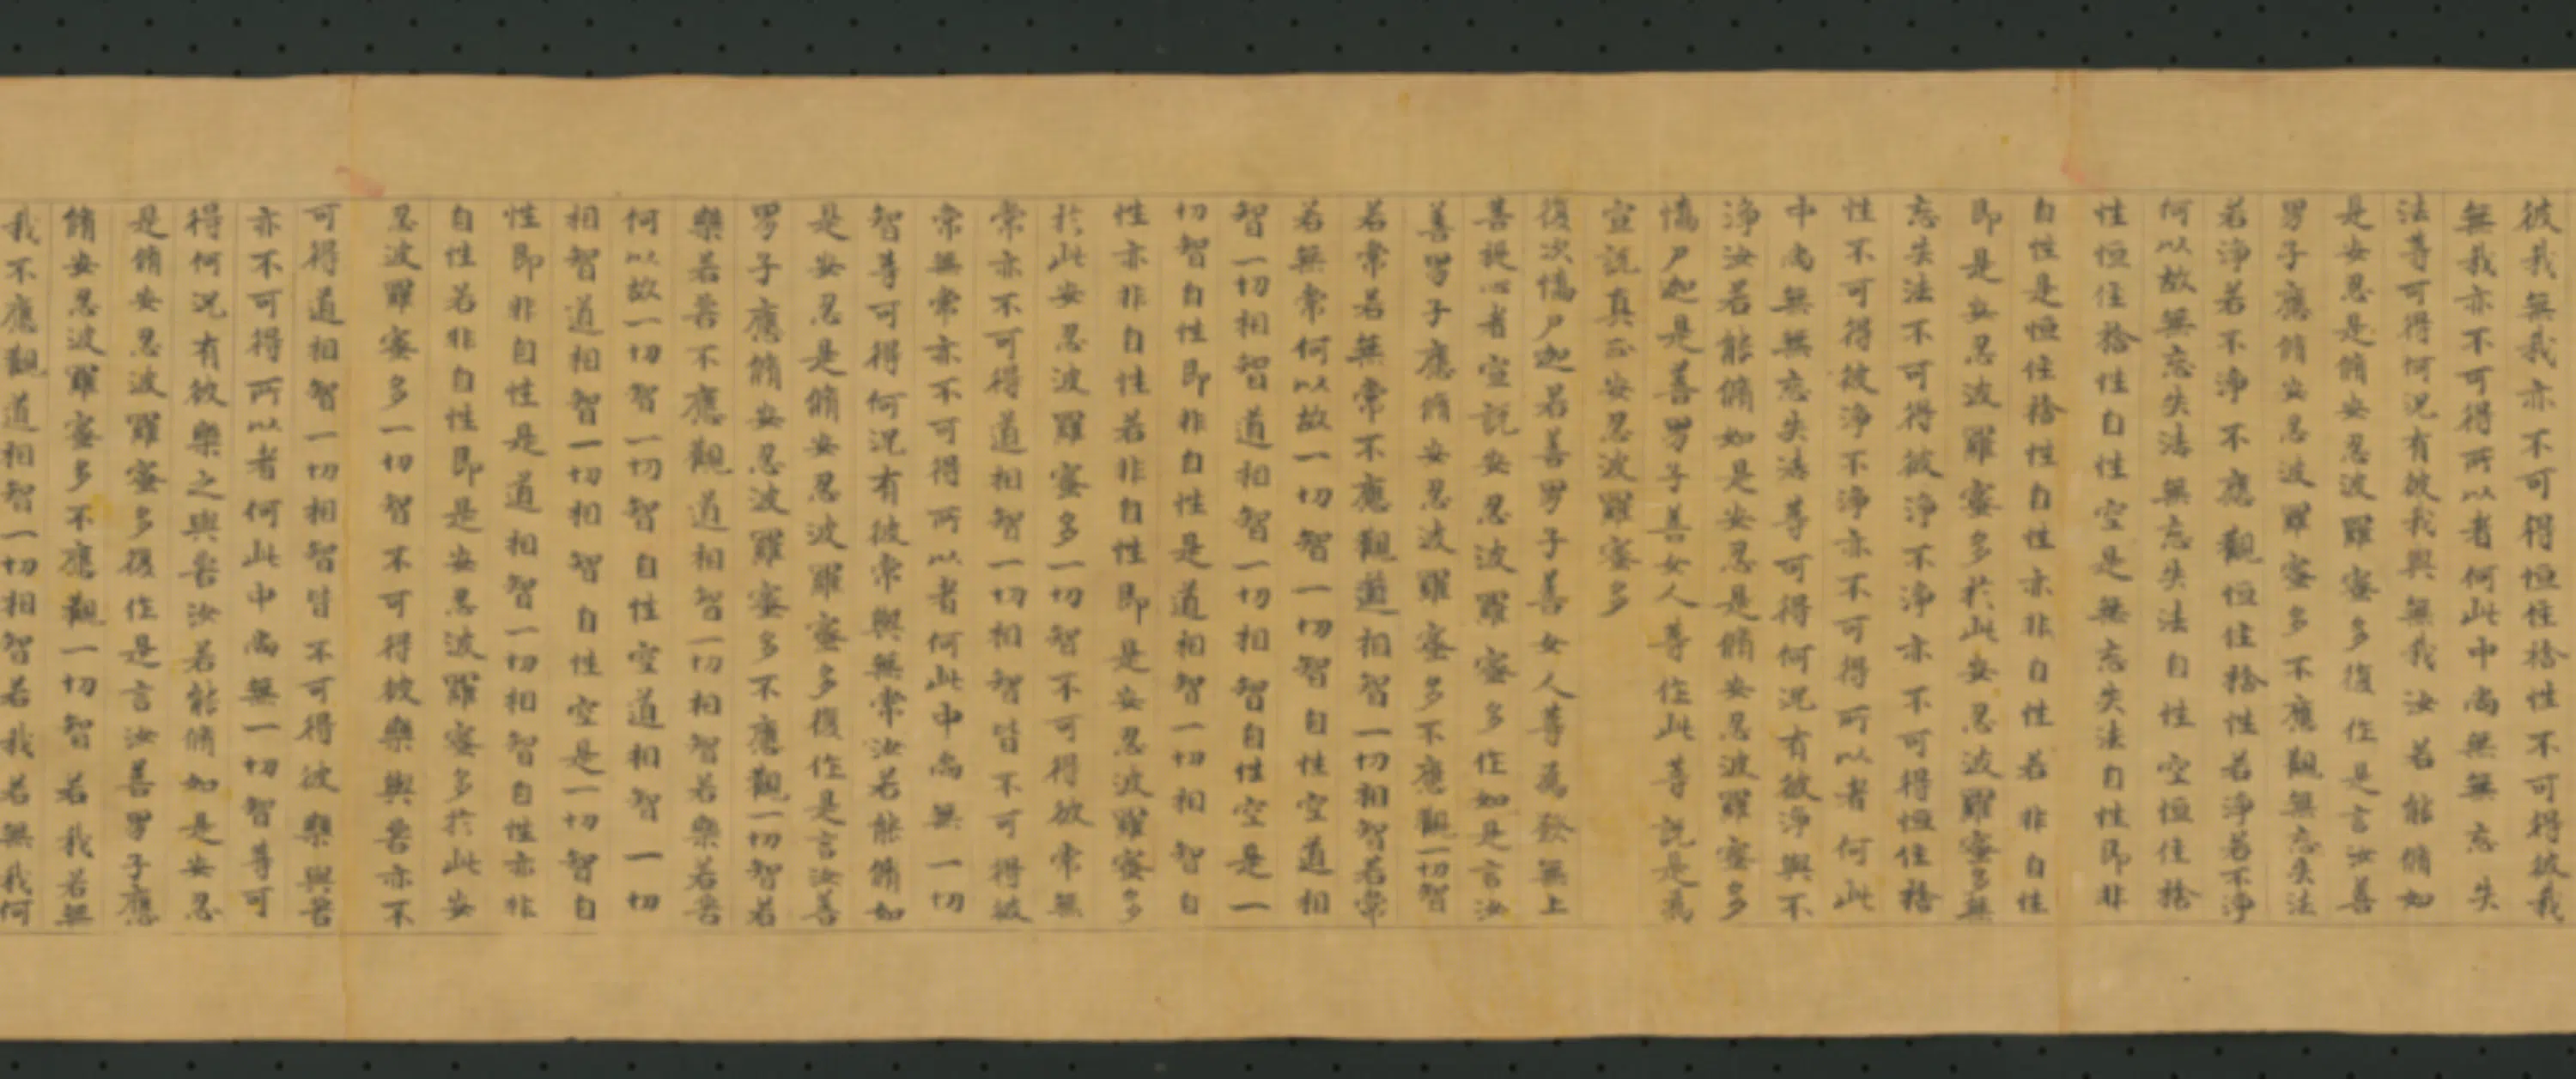 彼我無我亦不可得恒住捨性不可得彼我
無我亦不可得所以者何此中尚無無忘失
法等可得何況有彼我與無我汝若能脩如
是安忍是脩安忍波羅蜜多復作是言汝善
男子應脩安忍波羅蜜多不應觀無忘失法
若淨若不淨不應觀恒住捨性若淨若不淨
何以故無忘失法無忘失法自性空恒住捨
性恒住捨性自性空是無忘失法自性即非
自性是恒住捨性自性亦非自性若非自性
即是安忍波羅蜜多於此安忍波羅蜜多無
忘失法不可得彼淨不淨亦不可得恒住捨
性不可得彼淨不淨亦不可得所以者何此
中尚無無忘失法等可得何況有彼淨與不
淨汝若能脩如是安忍是脩安忍波羅蜜多
憍尸迦是善男子善女人等作此等說是為
宣說真正安忍波羅蜜多
復次憍尸迦若善男子善女人等為發無上
菩提心者宣說安忍波羅蜜多作如是言汝
善男子應脩安忍波羅蜜多不應觀一切智
若常若無常不應觀道相智一切相智若常
若無常何以故一切智一切智自性空道相
智一切相智道相智一切相智自性空是一
切智自性即非自性是道相智一切相智自
性亦非自性若非自性即是安忍波羅蜜多
於此安忍波羅蜜多一切智不可得彼常無
常亦不可得道相智一切相智皆不可得彼
常無常亦不可得所以者何此中尚無一切
智等可得何況有彼常與無常汝若能脩如
是安忍是脩安忍波羅蜜多復作是言汝善
男子應脩安忍波羅蜜多不應觀一切智若
樂若苦不應觀道相智一切相智若樂若苦
何以故一切智一切智自性空道相智一切
相智道相智一切相智自性空是一切智自
性即非自性是道相智一切相智自性亦非
自性若非自性即是安忍波羅蜜多於此安
忍波羅蜜多一切智不可得彼樂與苦亦不
可得道相智一切相智皆不可得彼樂與苦
亦不可得所以者何此中尚無一切智等可
得何況有彼樂之與苦汝若能脩如是安忍
是脩安忍波羅蜜多復作是言汝善男子應
脩安忍波羅蜜多不應觀一切智若我若無
我不應觀道相智一切相智若我若無我何